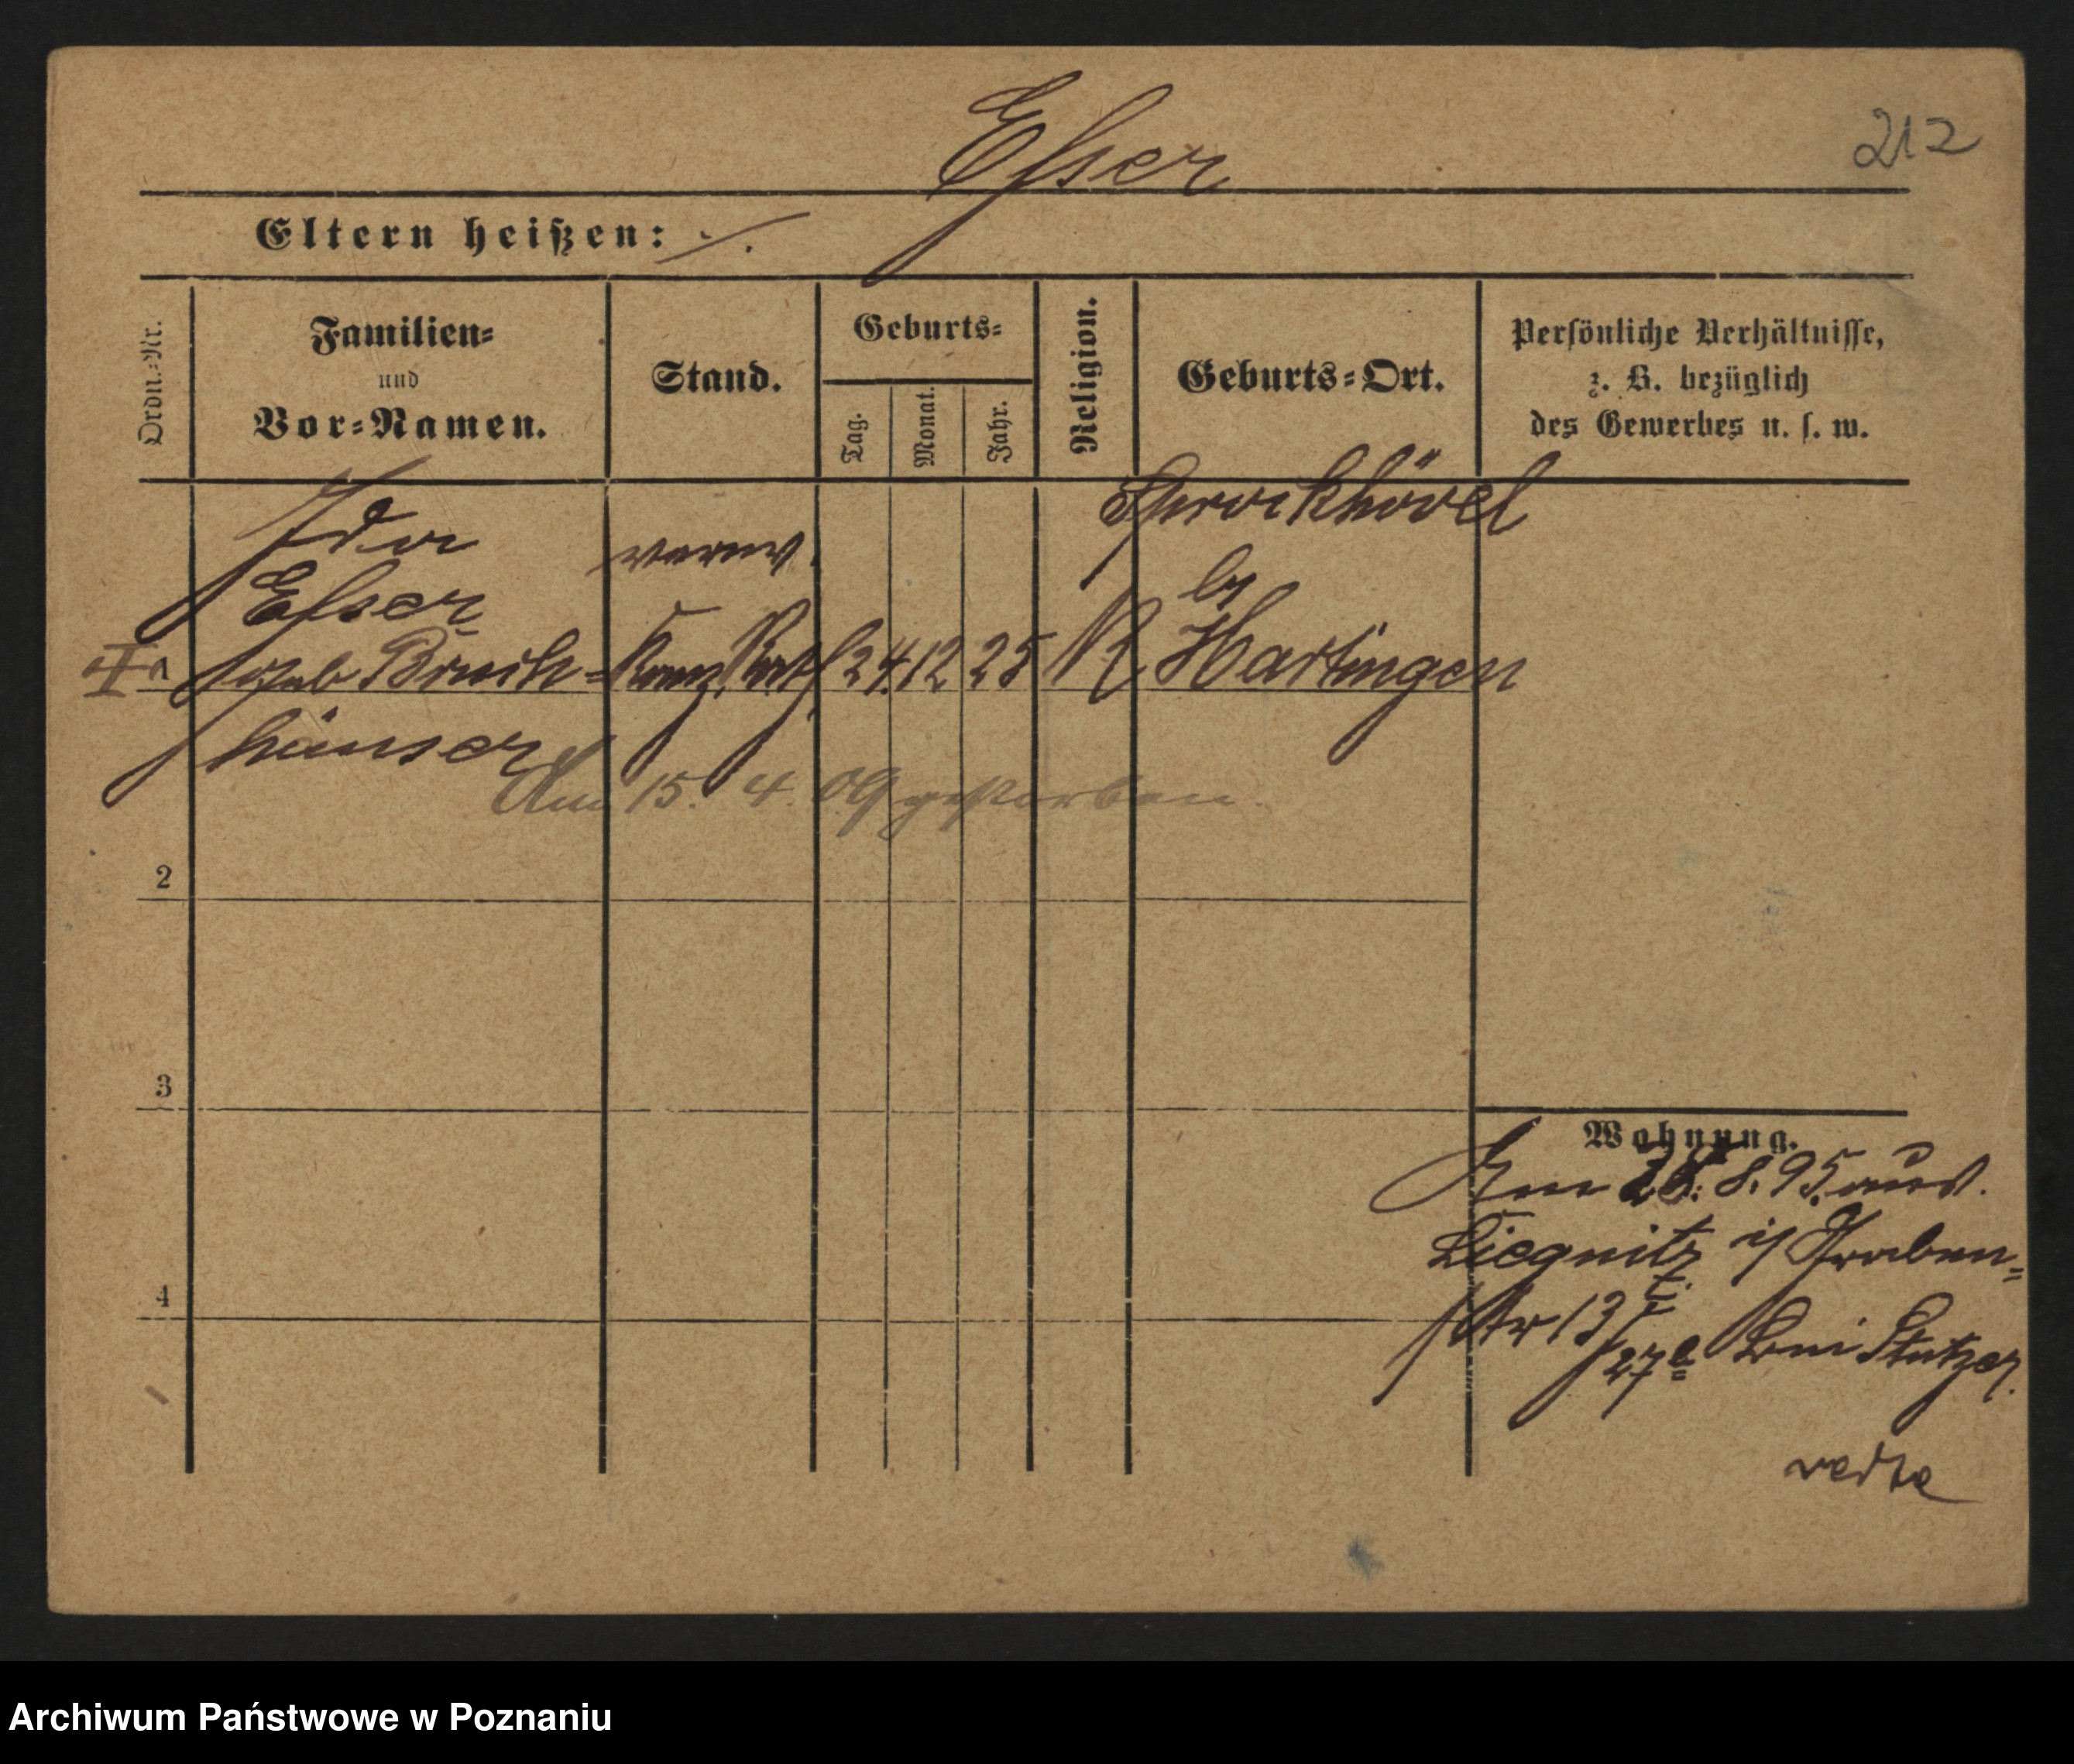 Esser
212
Eltern heißen: ./.
Ordn.-Nr.
Familien-
und
Vor-Namen.
Stand.
Geburts-
Tag.
Monat.
Jahr.
Religion.
Geburts-Ort.
Persönliche Verhältnisse,
z. B. bezüglich
des Gewerbes u. s. w.
Ida
Esser
geb Bruch-
häuser
verw.
24 12 25
K
Sprockhövel
b/
Hattingen
Am 15. 4. 09 gestorben.
2
3
4
Wohnung.
Am 28. 8. 95. aus
Liegnitz i/ Graben-
str 13 I
27a bei Stutzer.
verte
Archiwum Państwowe w Poznaniu